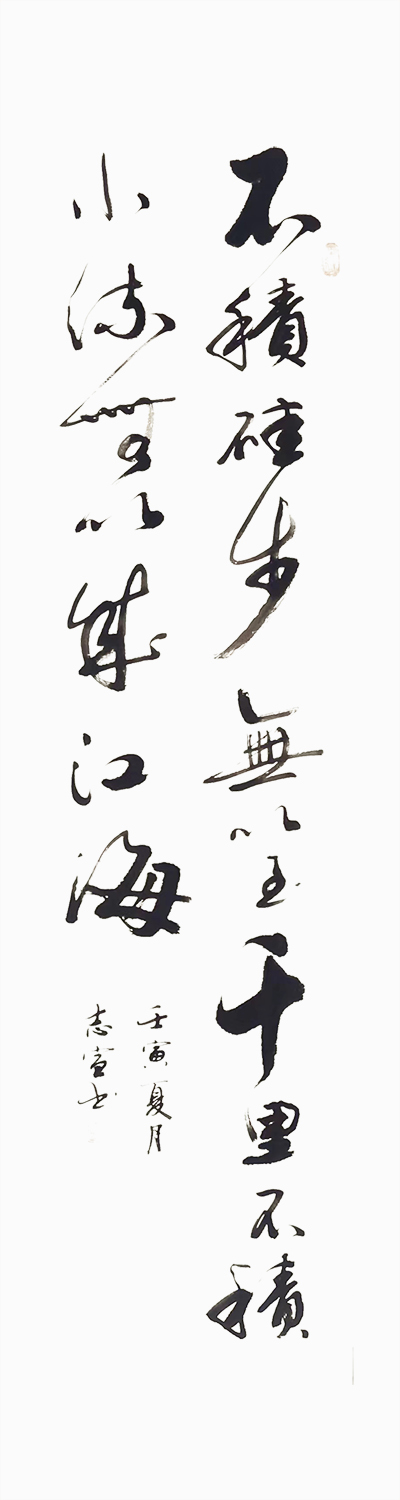 不積硅步無以至千里不積
小流無以成江海
壬寅夏月
志宣书